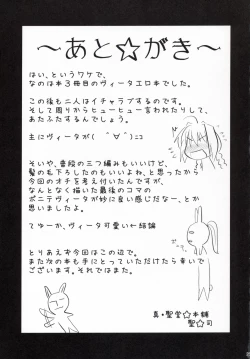 ～あと☆がき～
はい、というワケで、
なのは本3冊目のヴィータエロ本でした。
この後も二人はイチャラブするのです。
そして周りからヒューヒュー言われたりして、
あたふたするんでしょう。
主にヴィータが( ゜∀゜)=3
そいや、普段の三つ編みもいいけど、
髪の毛下ろしたのもいいよね、と思ったから
今回のオチを考え付いたんですが、
なんとなく描いた最後のコマの
ポニテヴィータが妙に良い感じだな～、とか
思いましたよ。
てゆーか、ヴィータ可愛い←結論
とりあえず今回はこの辺で。
また次の本も手にとっていただけたら幸いで
ございます。それではまた。
真・聖堂☆本舗
聖☆司